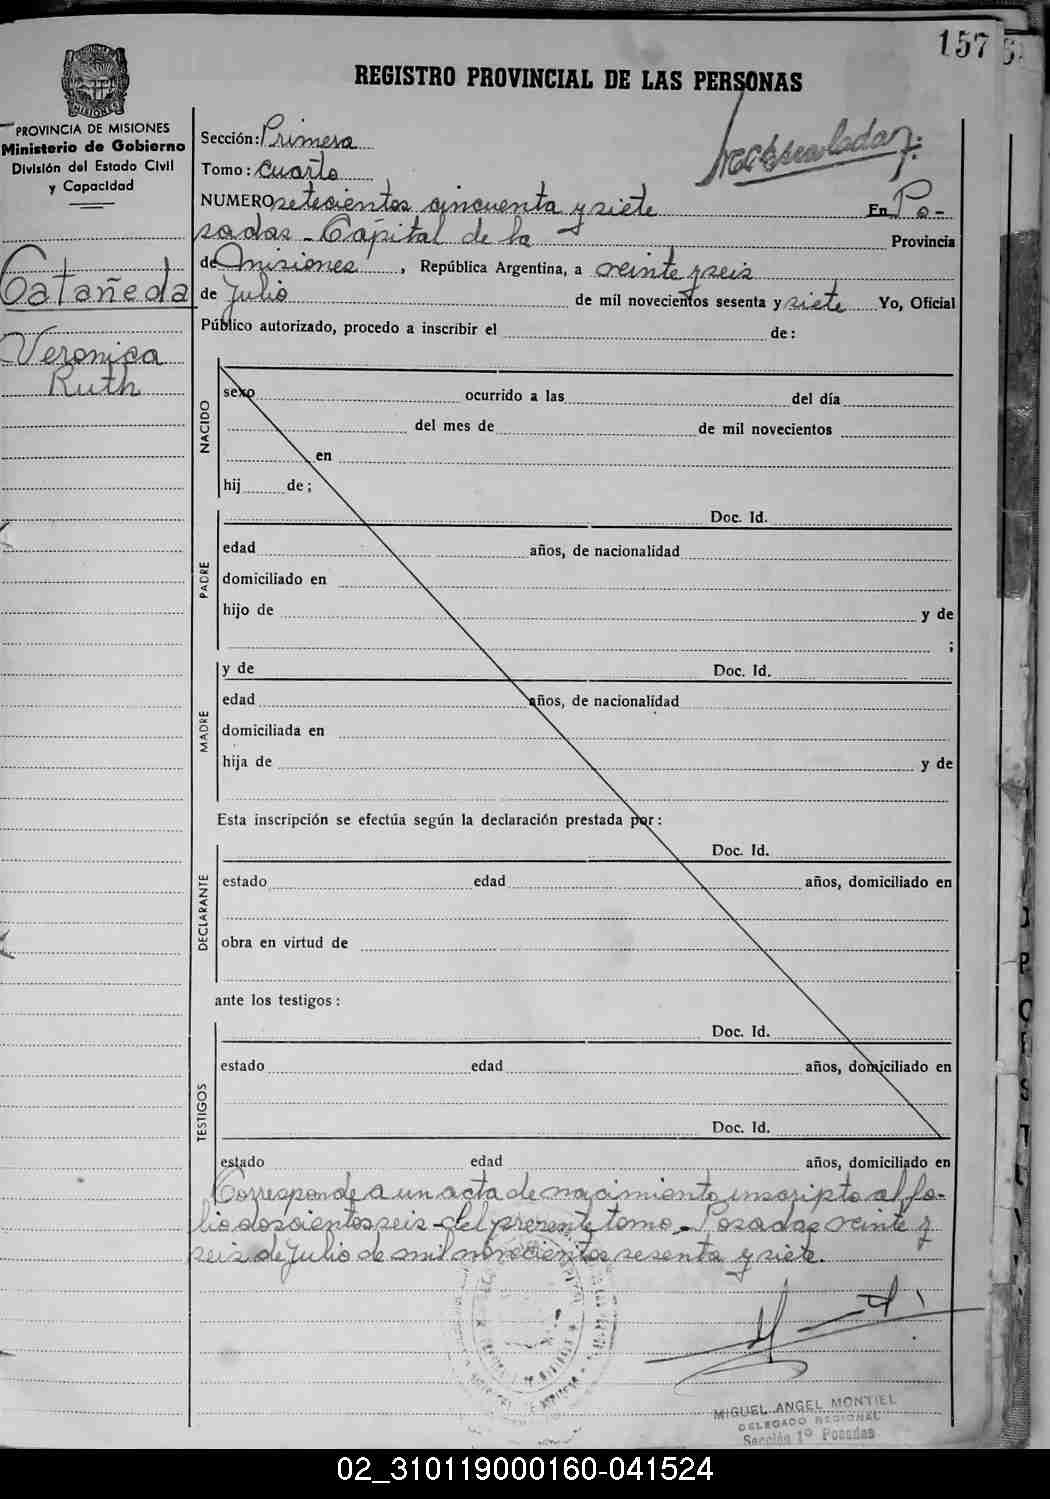 157
REGISTRO PROVINCIAL DE LAS PERSONAS
PROVINCIA DE MISIONES
Ministerio de Gobierno
División del Estado Civil
y Capacidad
Catañeda
Veronica
Ruth
Sección: Primera
Tomo: cuarto
NUMERO setecientos cincuenta y siete En Po-
sadas - Capital de la Provincia
de Misiones, República Argentina, a veinte y seis
de Julio de mil novecientos sesenta y siete Yo, Oficial
Público autorizado, procedo a inscribir el de:
NACIDO
sexo ocurrido a las del día
del mes de de mil novecientos
en
hij de;
PADRE
Doc. Id.
edad años, de nacionalidad
domiciliado en
hijo de y de
;
MADRE
y de Doc. Id.
edad años, de nacionalidad
domiciliada en
hija de y de
Esta inscripción se efectúa según la declaración prestada por:
DECLARANTE
Doc. Id.
estado edad años, domiciliado en
obra en virtud de
ante los testigos:
TESTIGOS
Doc. Id.
estado edad años, domiciliado en
Doc. Id.
estado edad años, domiciliado en
Corresponde a un acta de nacimiento inscripto al fo-
lio doscientos seis - del presente tomo - Posadas veinte y
seis de Julio de mil novecientos sesenta y siete.
MIGUEL ANGEL MONTIEL
DELEGADO REGIONAL
Sección 1º Posadas
02_310119000160-041524